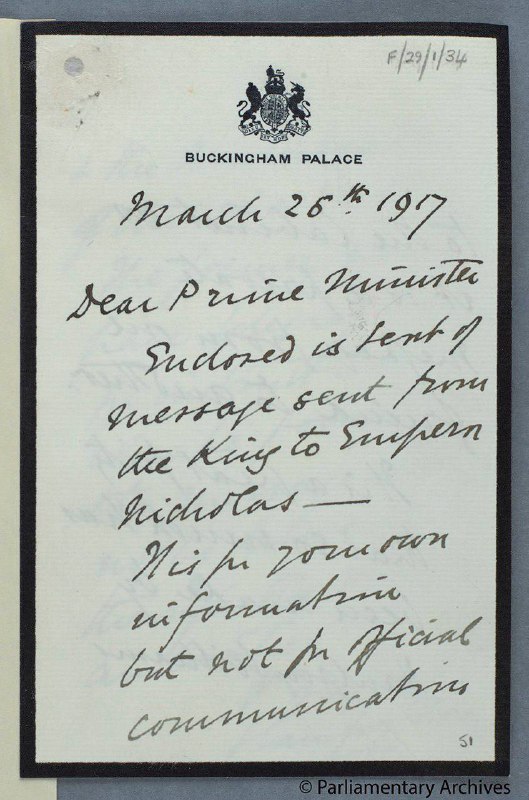 F/29/1/34
BUCKINGHAM PALACE
March 25th 1917
Dear Prime Minister
Enclosed is text of
message sent from
the King to Emperor
Nicholas —
It is for your own
information
but not for official
communication
51
© Parliamentary Archives